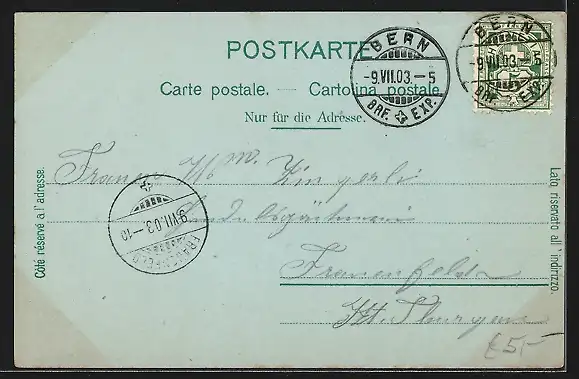 POSTKARTE.
Carte postale. — Cartolina postale.
Nur für die Adresse.
BERN
-9.VII.03.-5
BRF. EXP.
BERN
-9.VII.03.-5
BRF. EXP.
Côté réservé à l'adresse.
Lato riservato all'indirizzo.
Zingerli
9.VII.03.-10
FRAUENFELD
Frauenfeld
Kt. Thurgau
€5,-